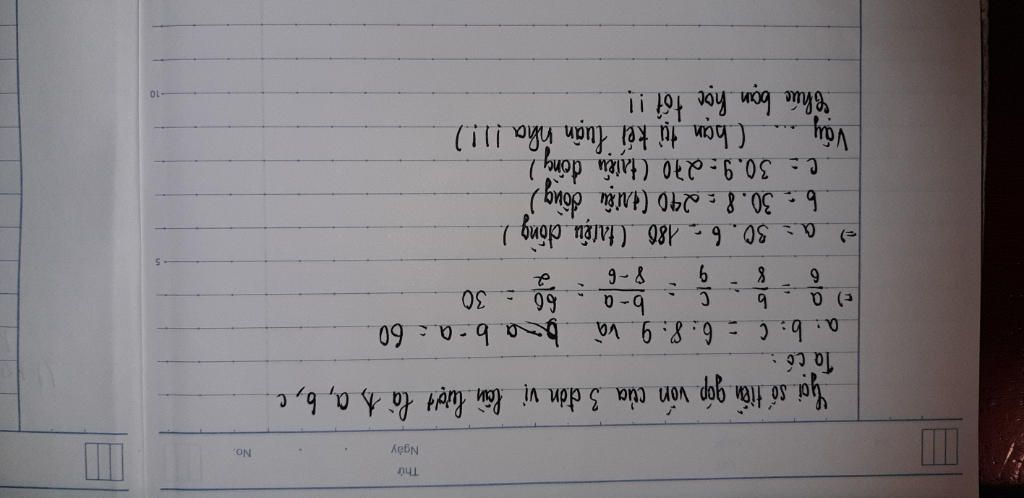 Thứ
Ngày
No.
Gọi số tiền góp vốn của 3 đơn vị lần lượt là a, b, c
Ta có:
a : b : c = 6 : 8 : 9 và b - a = 60
=) a/6 = b/8 = c/9 = b-a/8-6 = 60/2 = 30
5
=) a = 30 . 6 = 180 (triệu đồng)
b = 30 . 8 = 240 (triệu đồng)
c = 30 . 9 = 270 (triệu đồng)
Vậy ... (bạn tự kết luận nha !!!!)
Chúc bạn học tốt !!
10